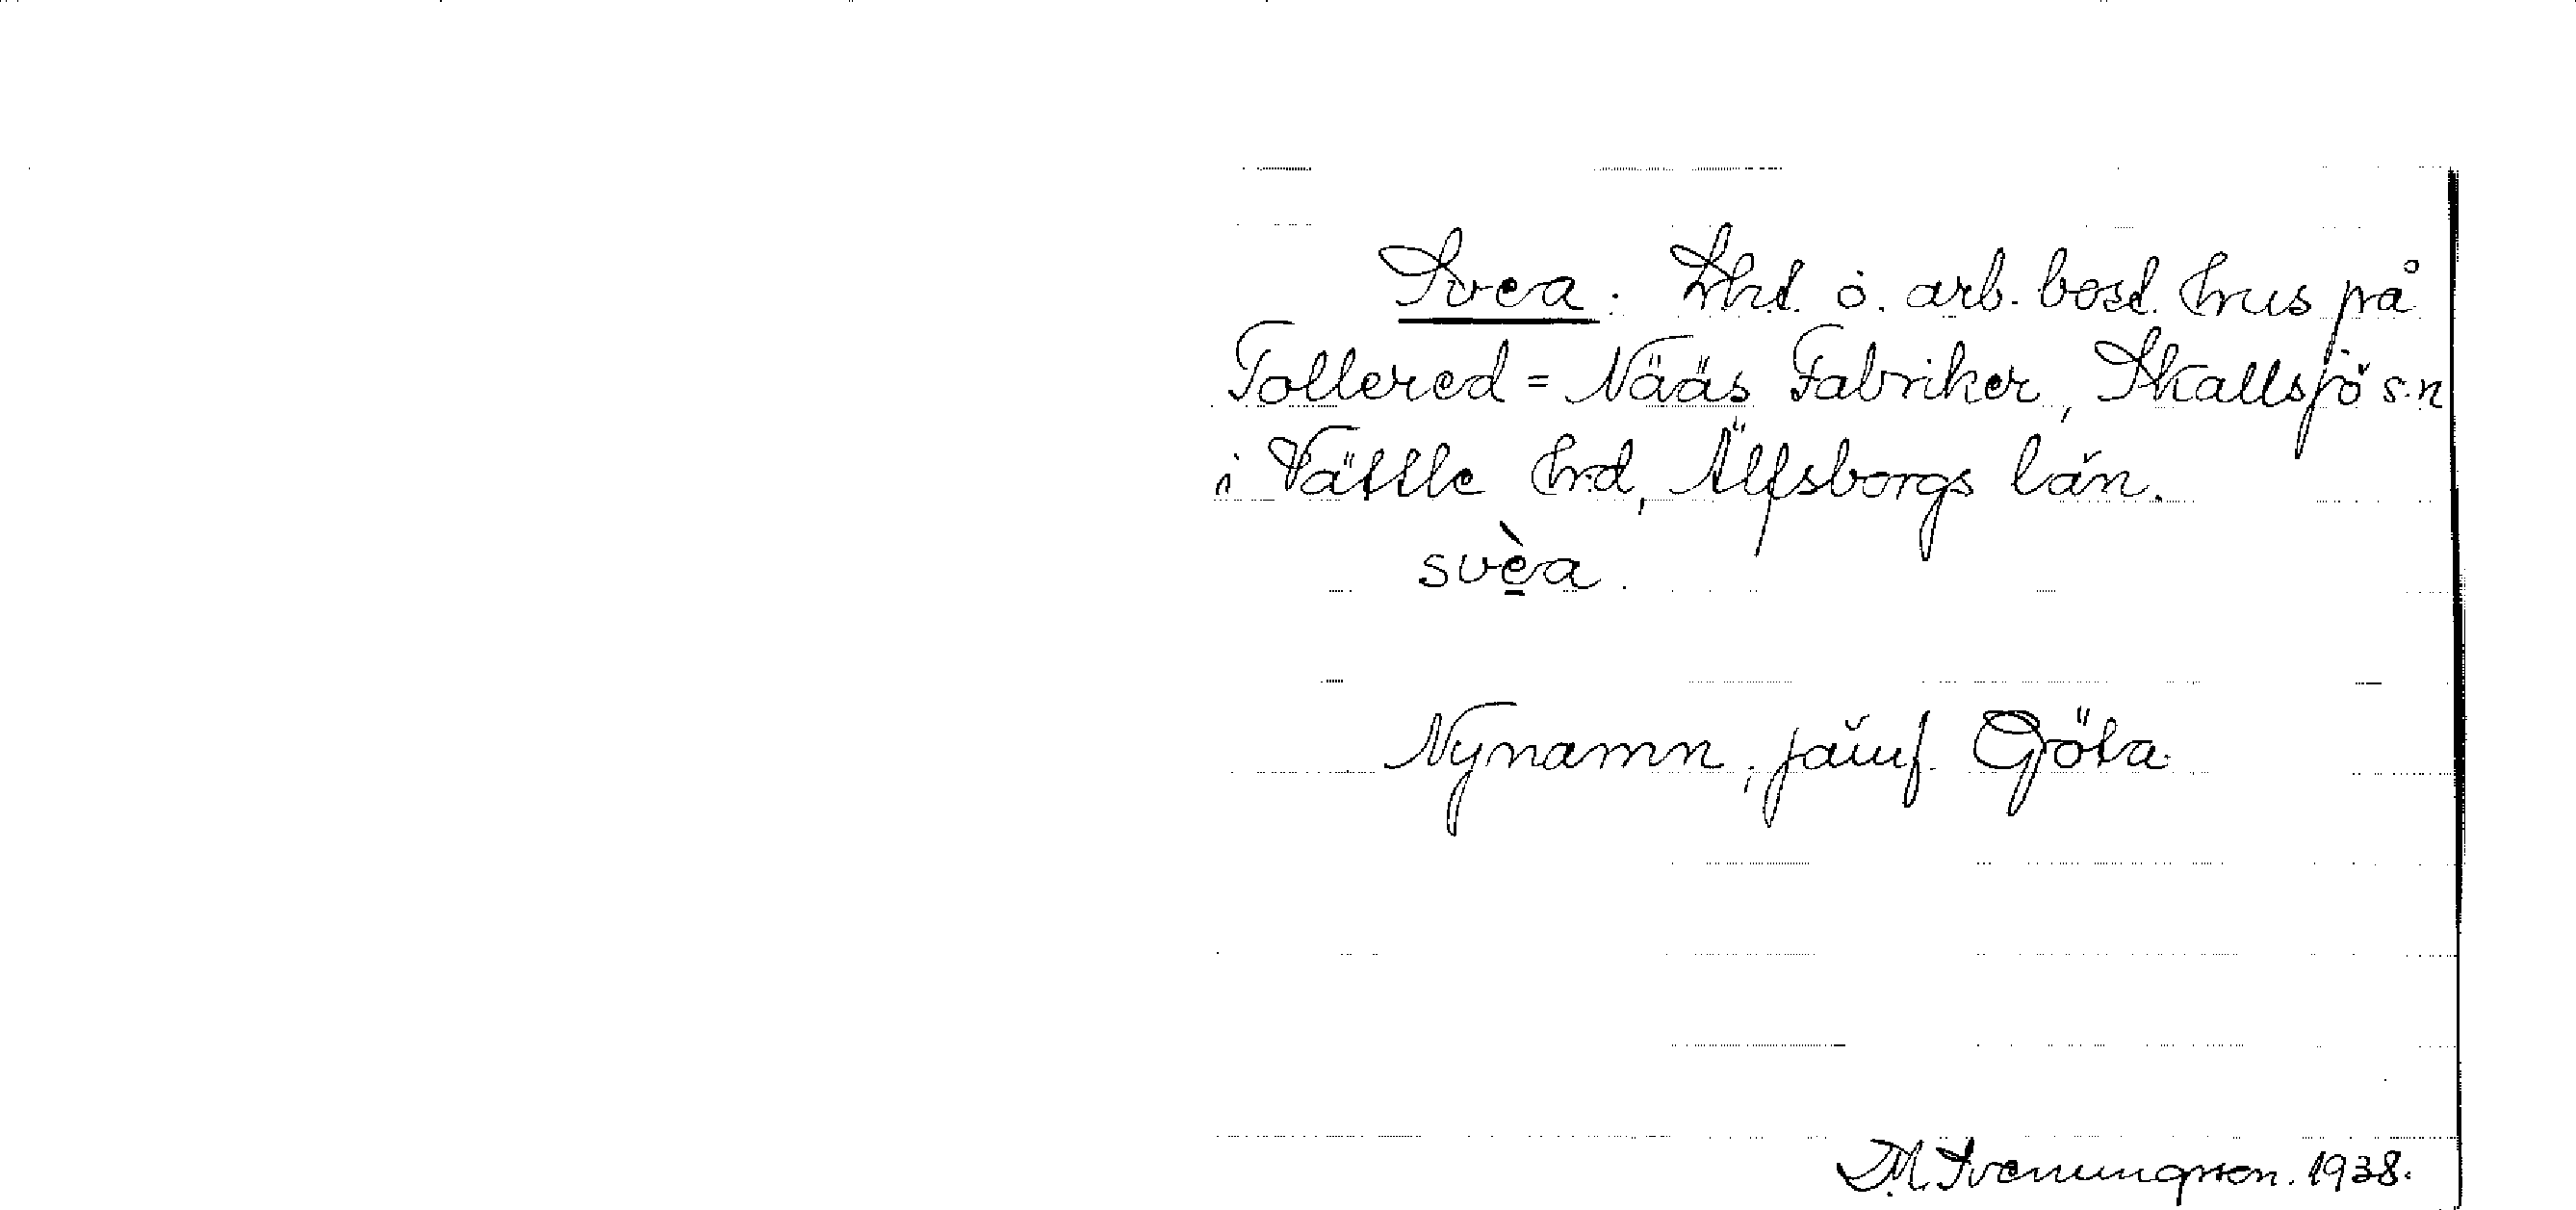 Svea. Lht. o. arb. bost. hus på
Tollered = Nääs Fabriker, Skallsjö s.n
i Vättle hrd, Älfsborgs län.
svèa.
Nynamn, jämf. Göta.
Svenungsson. 1938.